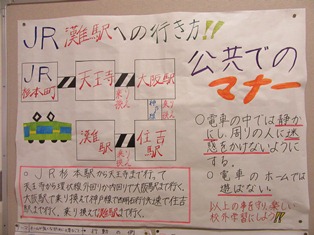 JR灘駅への行き方!!
公共での
マナー
JR
杉本町
天王寺
大阪駅
乗り換え
灘駅
住吉駅
乗り換え
○JR杉本駅から天王寺まで行って、
天王寺から環状線外回りか内回りで大阪駅まで行く。
大阪駅で乗り換えて神戸線で
住吉駅まで行く。乗り換えて灘駅まで行く。
○電車の中では静かにし、周りの人に迷惑をかけないようにする。
○電車のホームでは遊ばない。
以上の事を守り、楽しい
校外学習にしよう!!